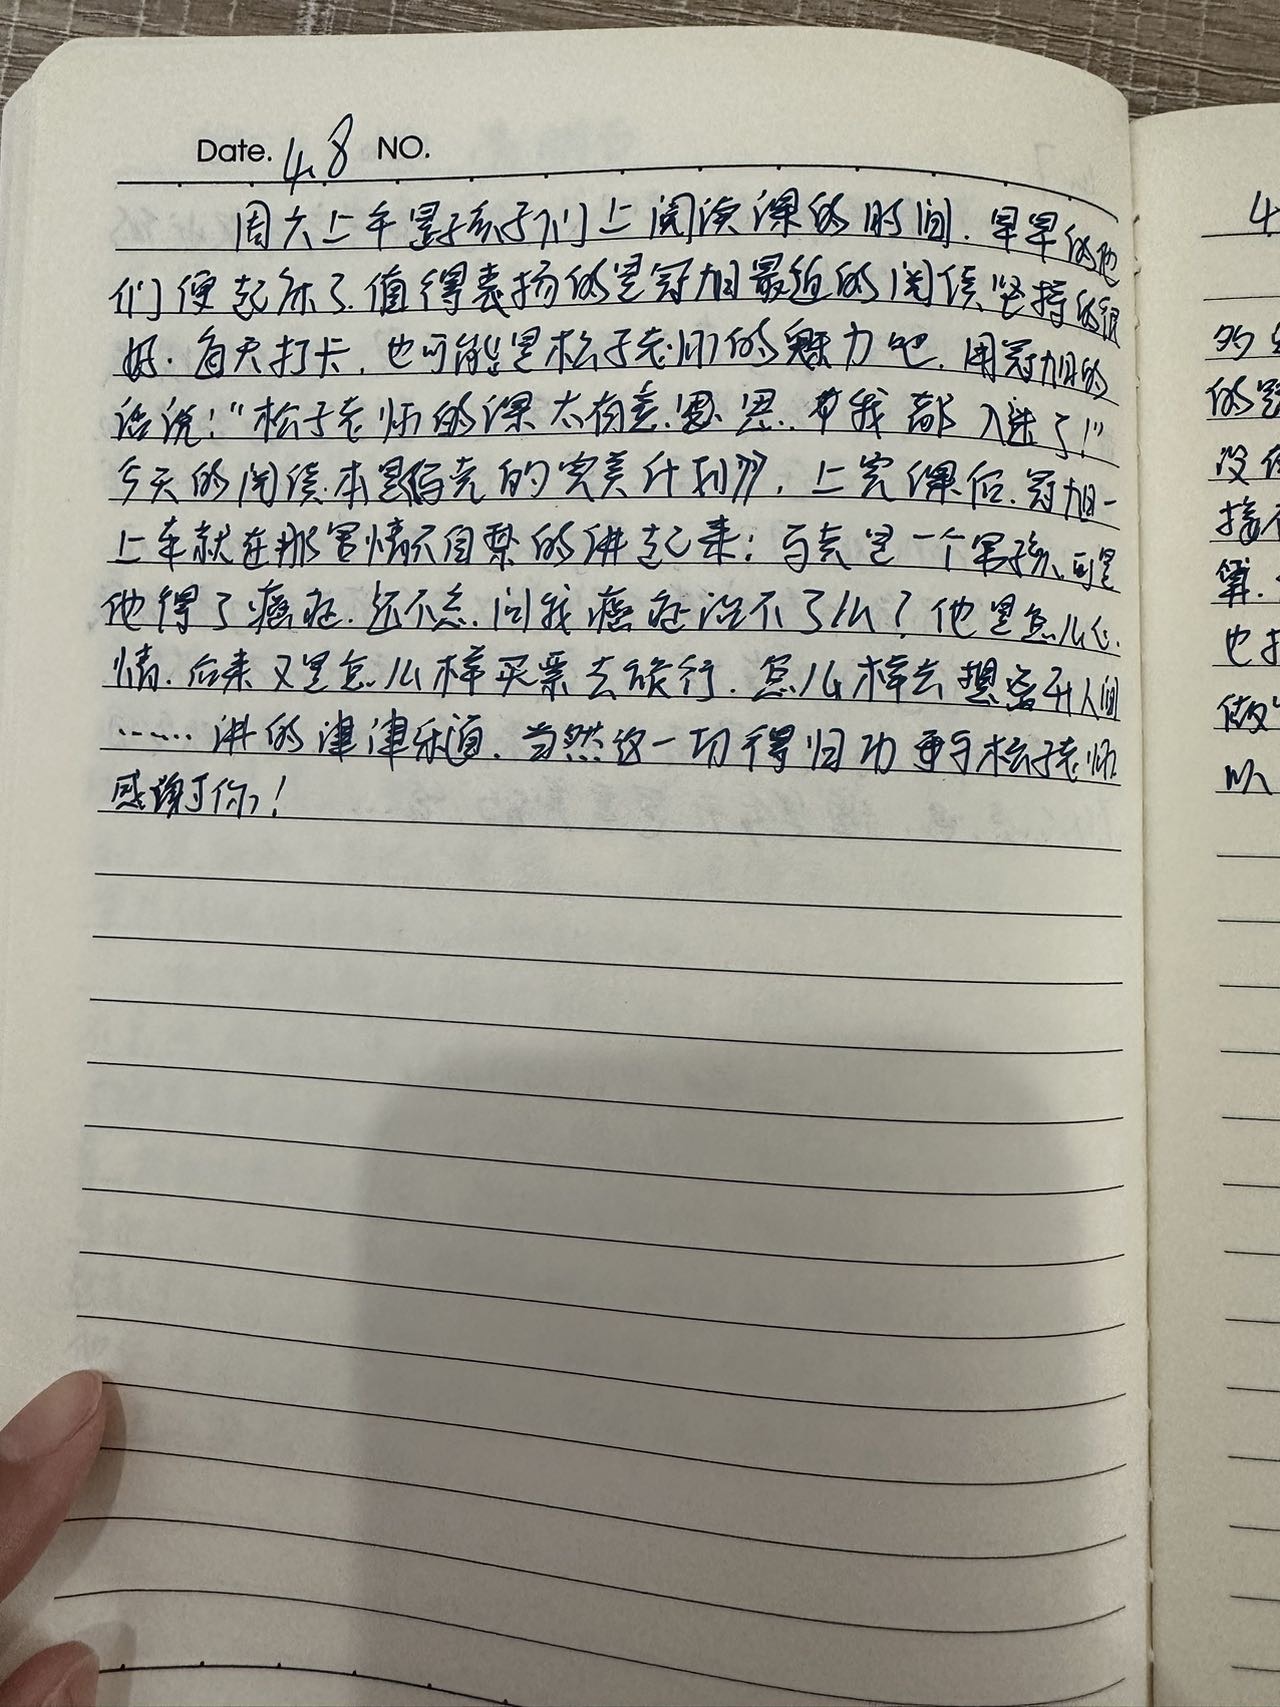 Date. 4.8 NO.
周六上午是孩子们上阅读课的时间.早早的他
们便起床了.值得表扬的是冠旭最近的阅读坚持的很
好.每天打卡,也可能是松子老师的魅力吧.用冠旭的
话说:“松子老师的课太有意思.把我都入迷了!”
今天的阅读本是马克的完美计划》,上完课后.冠旭一
上车就在那里情不自禁的讲起来:马克是一个男孩.可是
他得了癌症.还不忘问我癌症治不了么?他是怎么心
情.后来又是怎么样买票去旅行.怎么样去想离开人间
……讲的津津乐道.当然这一切得归功于松子老师
感谢你!
4
多
的
没
接
算.
也
做
以